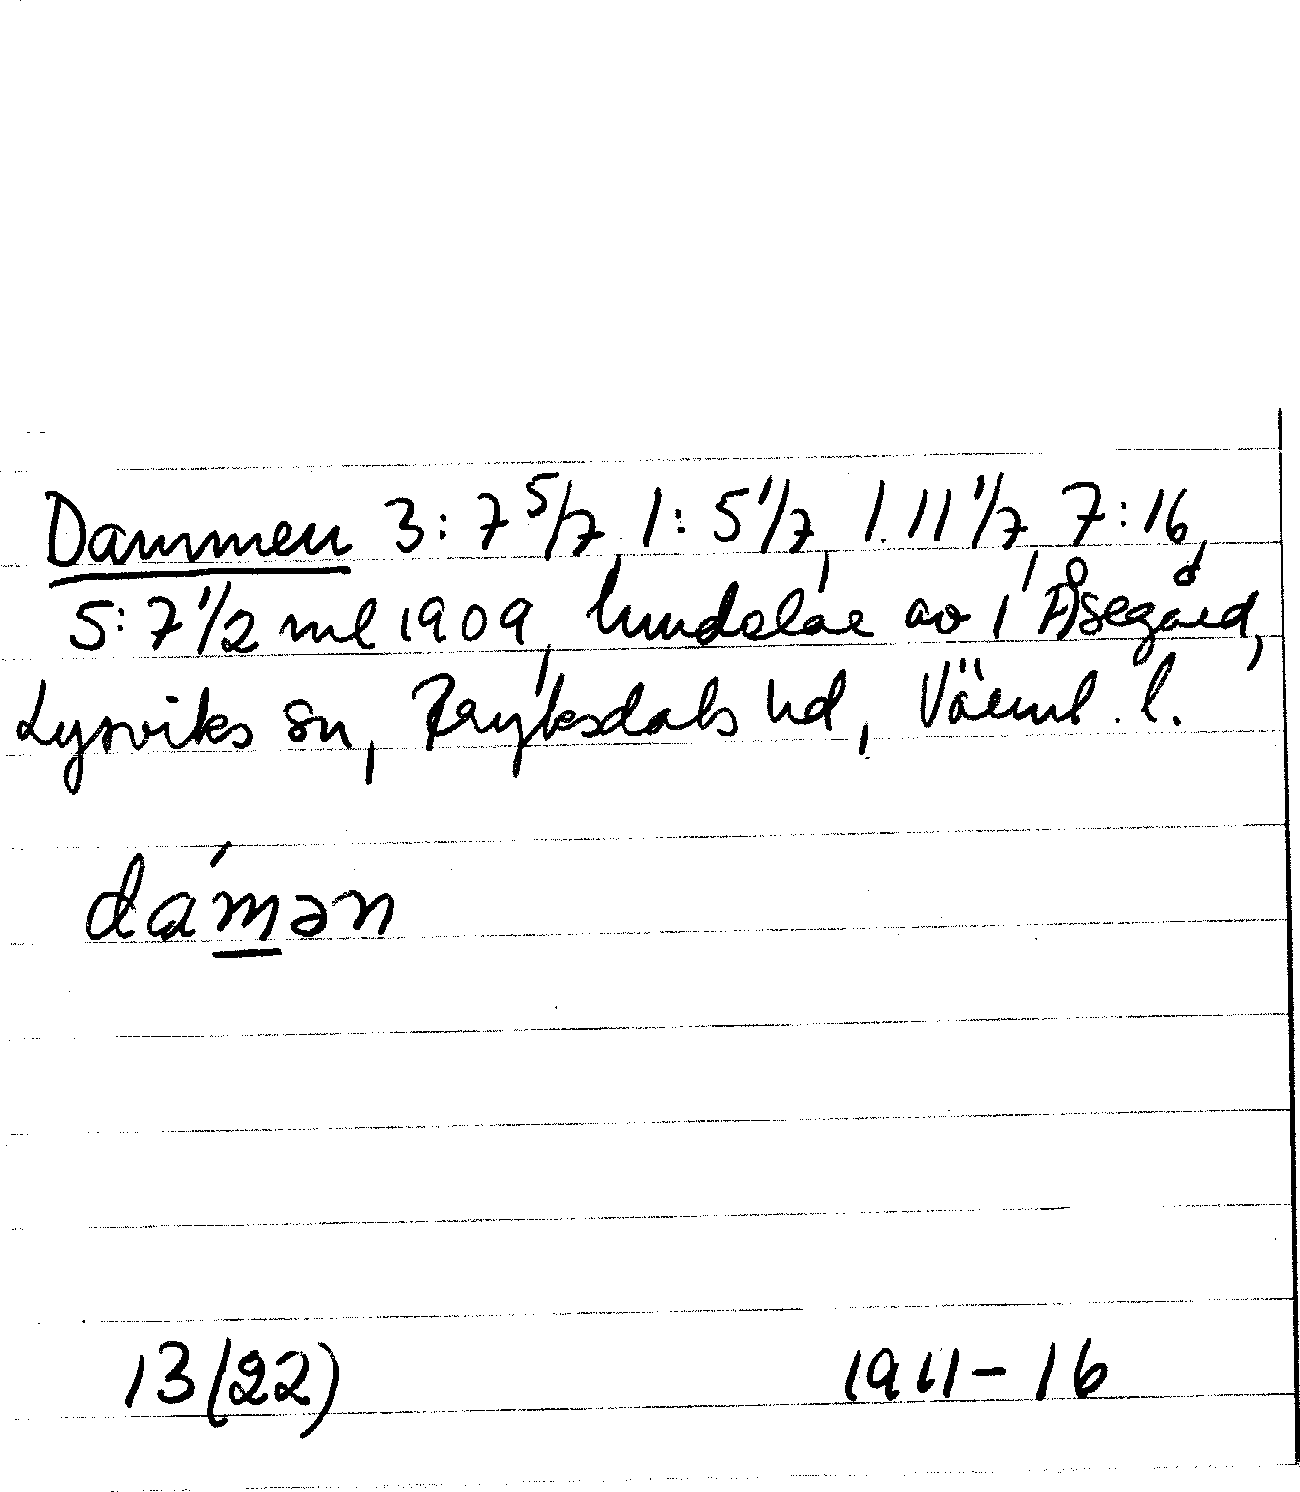 Dammen 3:7 5/7, 1:5 1/7, 1.11 1/7, 7:16,
5:7 1/2 ml 1909, hundelar av i Åsegård,
Lysviks sn, Fryksdals hd, Värml. l.
dám̲ən
13(22) 1911-16